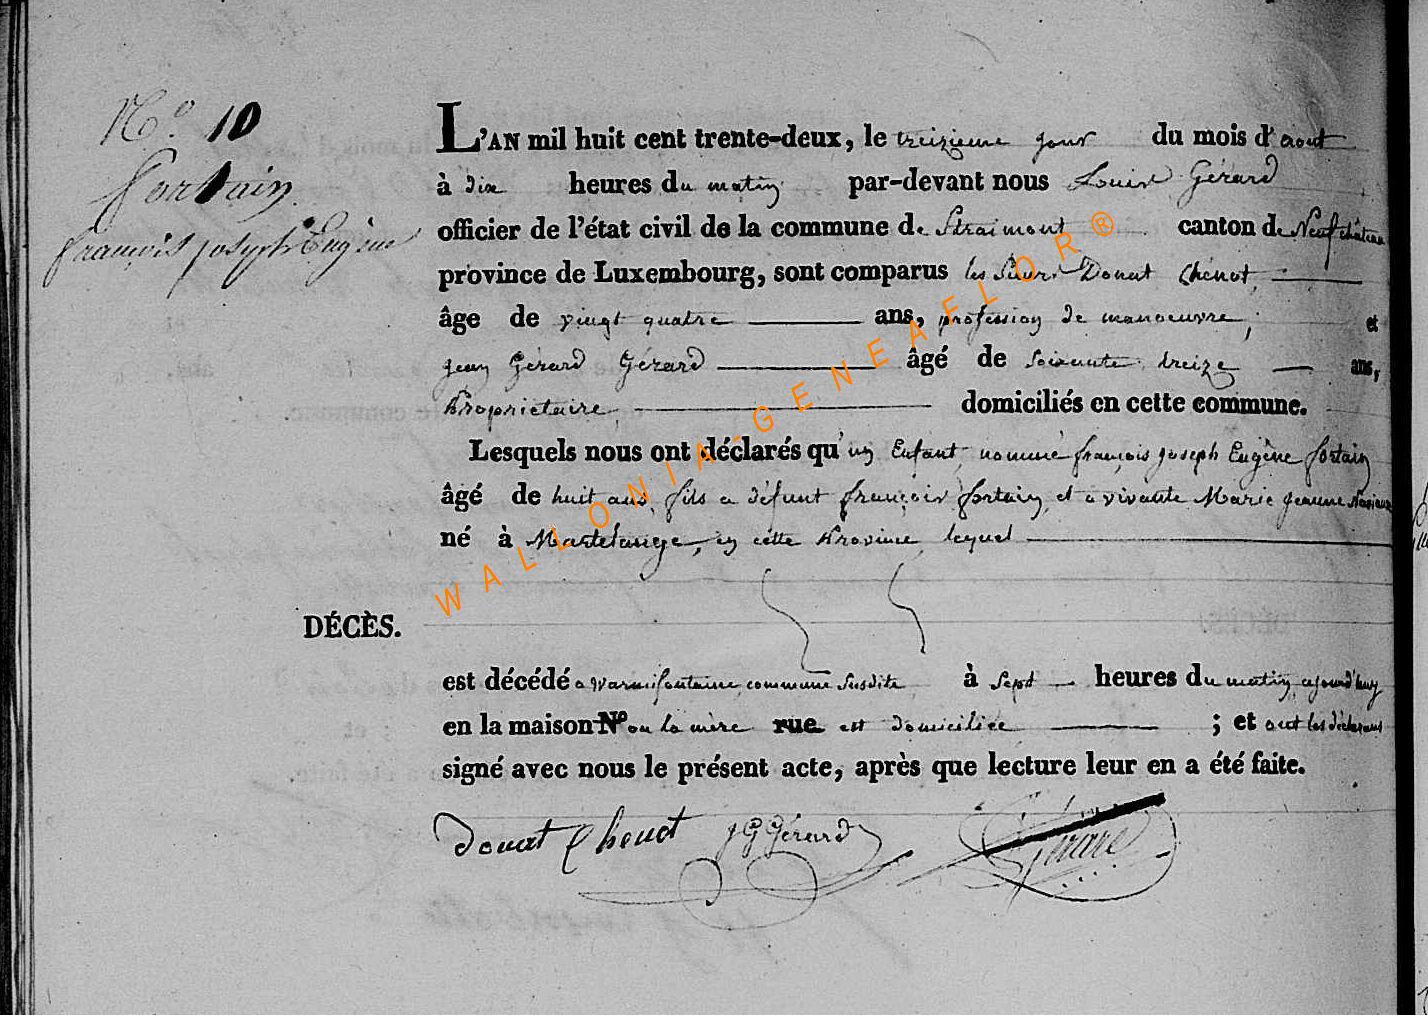 N.º 10
fortain
françois joseph Eugène
L'AN mil huit cent trente-deux, le treizieme jour du mois d'aout
à dix heures du matin par-devant nous Louis Gérard
officier de l'état civil de la commune de Straimont canton de Neufchâteau
province de Luxembourg, sont comparus les Sieurs Donat Chenot,
âge de vingt quatre ans, profession de manoeuvre, et
Jean Gérard Gérard âgé de soixante treize ans,
Propriétaire, domiciliés en cette commune.
Lesquels nous ont déclarés qu'un Enfant, nommé françois joseph Eugène fortain
âgé de huit ans, fils a défunt françois fortain, et a vivante Marie jeanne
né à Martelange, en cette Province, lequel
DÉCÈS.
est décédé a Warmifontaine, commune susdite, à Sept heures du matin, ajourd'huy
en la maison Nº ou la mère rue est domiciliée ; et ont les déclarans
signé avec nous le présent acte, après que lecture leur en a été faite.
Donat Chenot JGGérard Gérard
WALLONIA-GENEAFLOR®